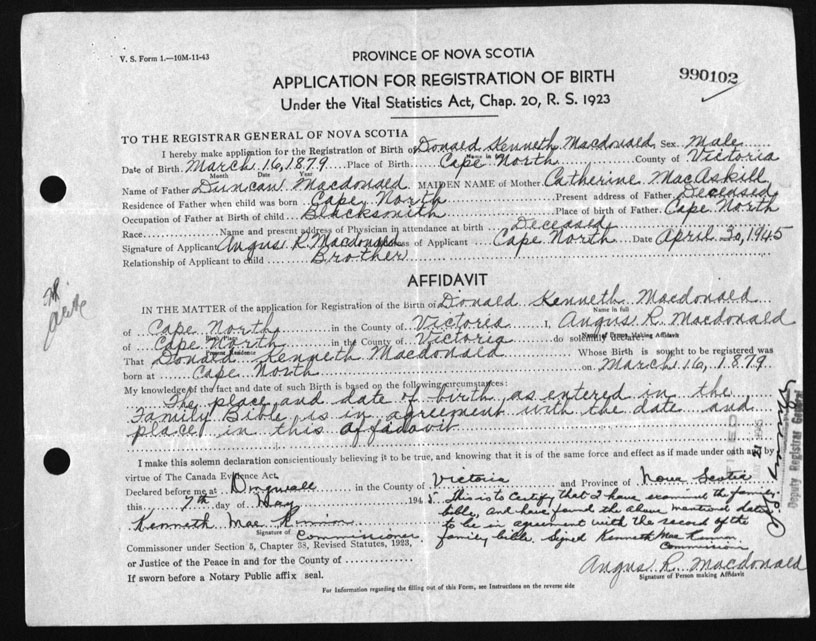 V. S. Form 1.—10M-11-43
PROVINCE OF NOVA SCOTIA
990102
APPLICATION FOR REGISTRATION OF BIRTH
Under the Vital Statistics Act, Chap. 20, R. S. 1923
TO THE REGISTRAR GENERAL OF NOVA SCOTIA
I hereby make application for the Registration of Birth of Donald Kenneth Macdonald Sex Male
Name in full
Date of Birth March 16, 1879 Place of Birth Cape North County of Victoria
Month Date Year
Name of Father Duncan Macdonald MAIDEN NAME of Mother Catherine MacAskill
Residence of Father when child was born Cape North Present address of Father Deceased
Occupation of Father at Birth of child Blacksmith Place of birth of Father Cape North
Race Name and present address of Physician in attendance at birth Deceased
Signature of Applicant Angus R. Macdonald Address of Applicant Cape North Date April 30, 1945
Relationship of Applicant to child Brother
AFFIDAVIT
IN THE MATTER of the application for Registration of the Birth of Donald Kenneth Macdonald
Name in full
of Cape North in the County of Victoria I, Angus R. Macdonald
Name of Person making Affidavit
of Cape North in the County of Victoria do solemnly declare
Present Residence
That Donald Kenneth Macdonald Whose Birth is sought to be registered was
born at Cape North on March 16, 1879
My knowledge of the fact and date of such Birth is based on the following circumstances:
The place and date of birth as entered in the
Family Bible is in agreement with the date and
place in this affidavit
I make this solemn declaration conscientiously believing it to be true, and knowing that it is of the same force and effect as if made under oath and by
virtue of The Canada Evidence Act.
Declared before me at Dingwall in the County of Victoria and Province of Nova Scotia
this 7th day of May 1945
This is to certify that I have examined the family
bible, and have found the above mentioned dates
to be in agreement with the record of the
family bible. Signed Kenneth MacKinnon
Commissioner
Kenneth MacKinnon
Signature of Commissioner
Commissoner under Section 5, Chapter 38, Revised Statutes, 1923,
or Justice of the Peace in and for the County of
If sworn before a Notary Public affix seal.
Angus R. Macdonald
Signature of Person making Affidavit
For Information regarding the filling out of this Form, see Instructions on the reverse side
Deputy Registrar General